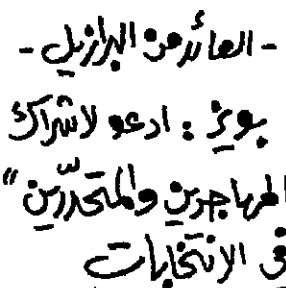 - العائد من البرازيل -
بويز : ادعو لاشراك
المهاجرين والمتحدّرين"
في الانتخابات